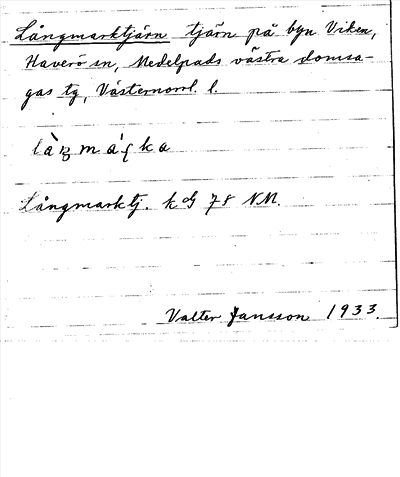 Långmarktjärn tjärn på byn Viken,
Haverö sn, Medelpads västra domsa-
gas tg, Västernorrl. l.
Långmarktj. k 78 NV.
Valter Jansson 1933.